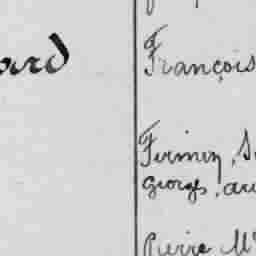 ard
François
Firmin, S
Georges, au
Pierre M